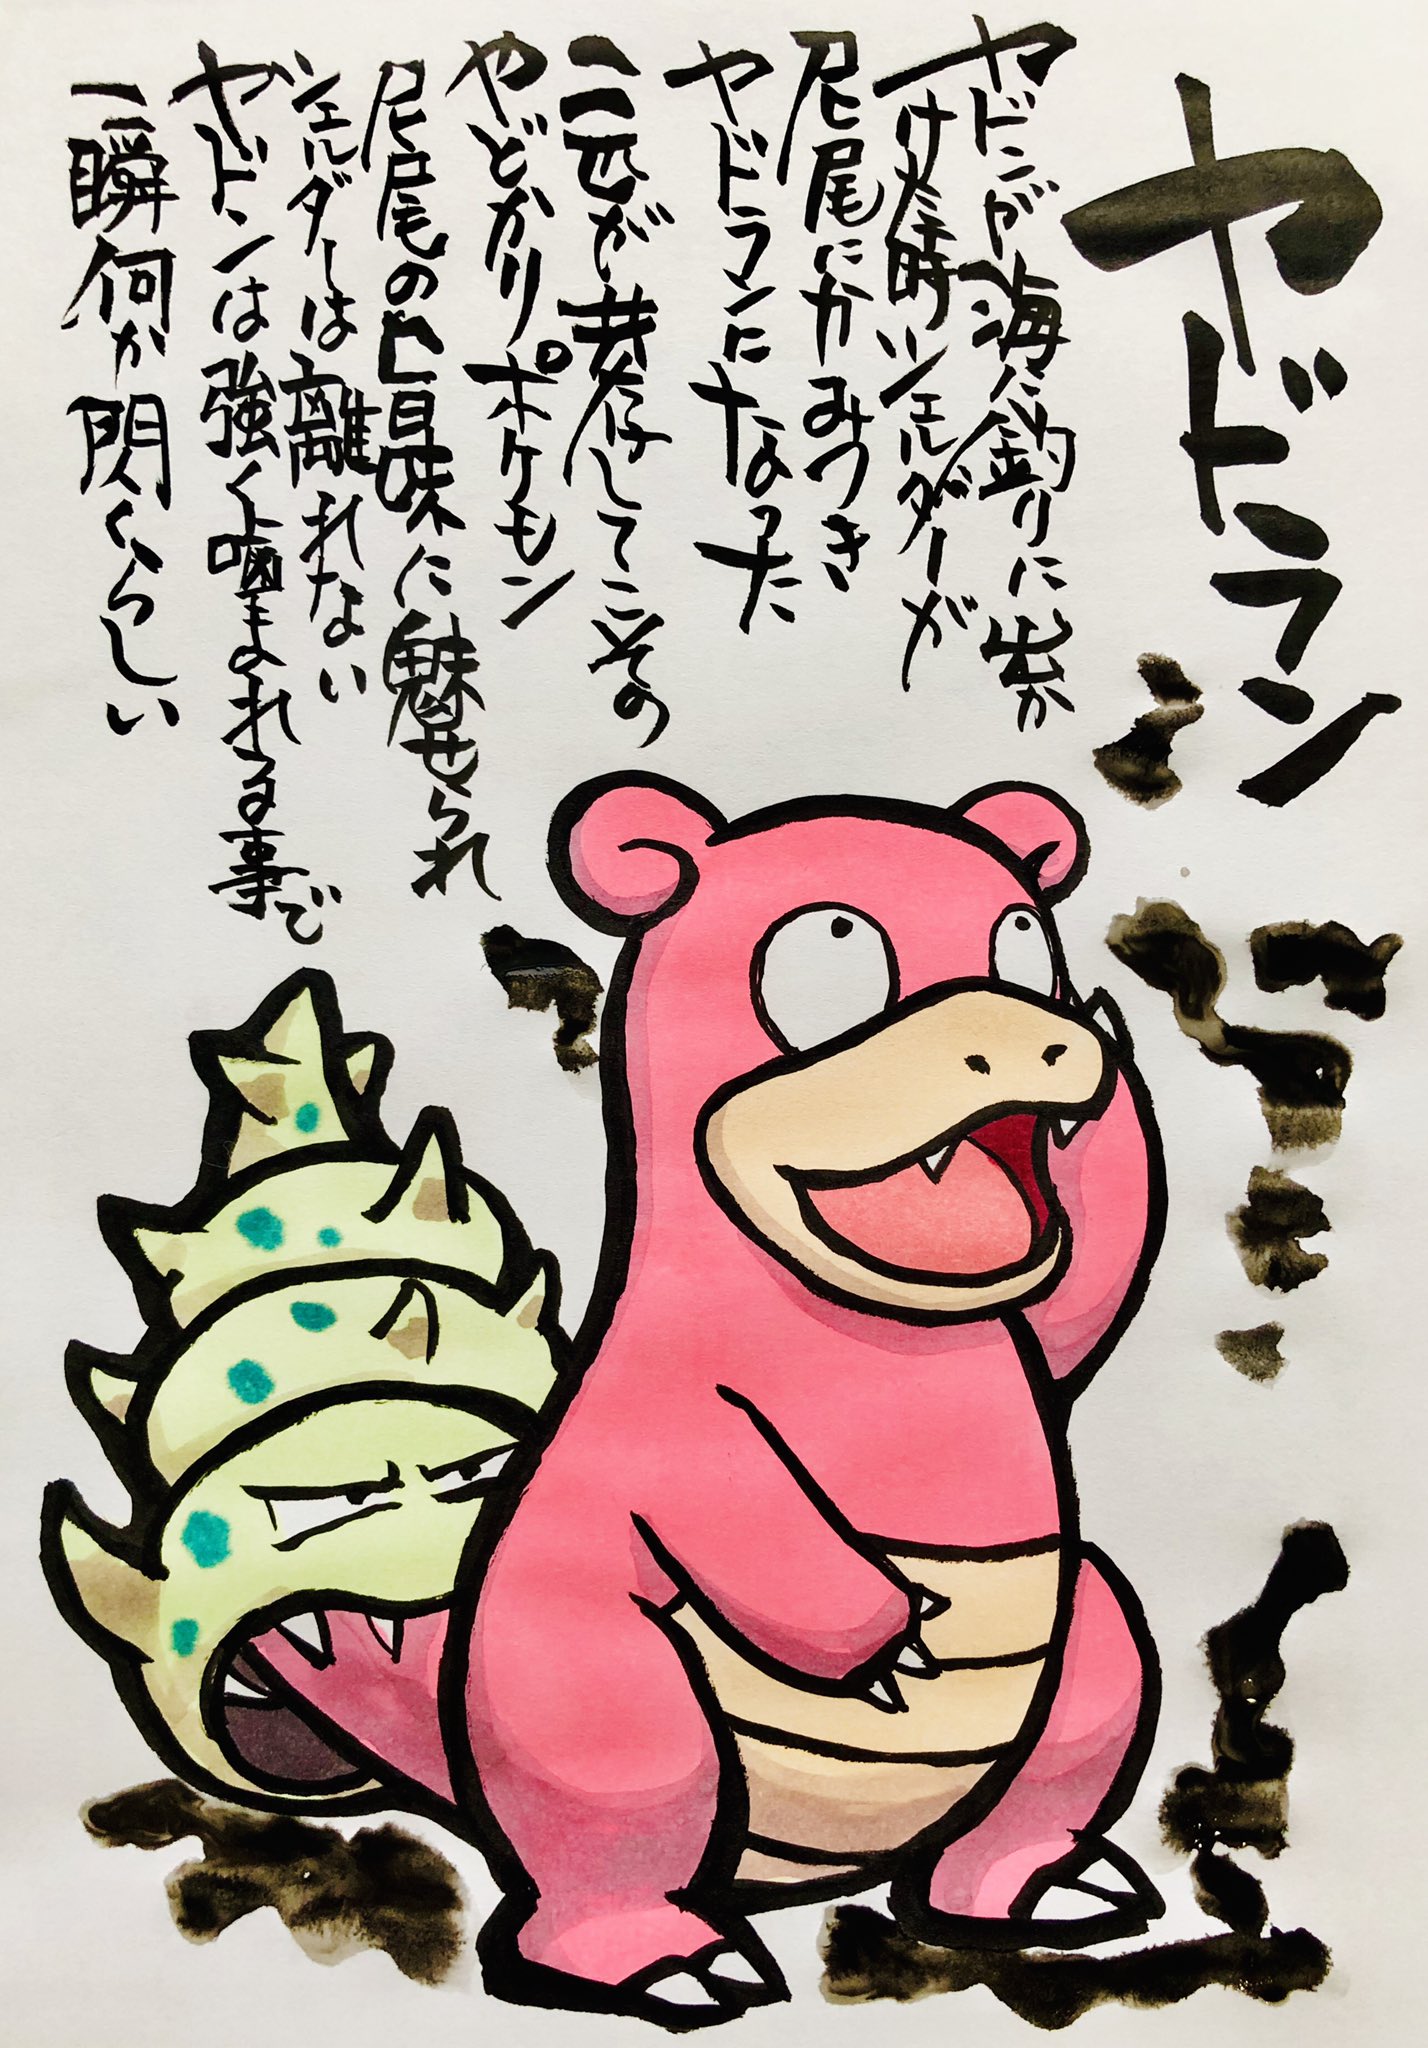 ヤドラン
ヤドンが海に釣りに出か
けた時シェルダーが
尻尾にかみつき
ヤドランになった
二匹が共存してこその
やどかりポケモン
尻尾の旨味に魅せられ
シェルダーは離れない
ヤドンは強く噛まれる事で
一瞬何か閃くらしい